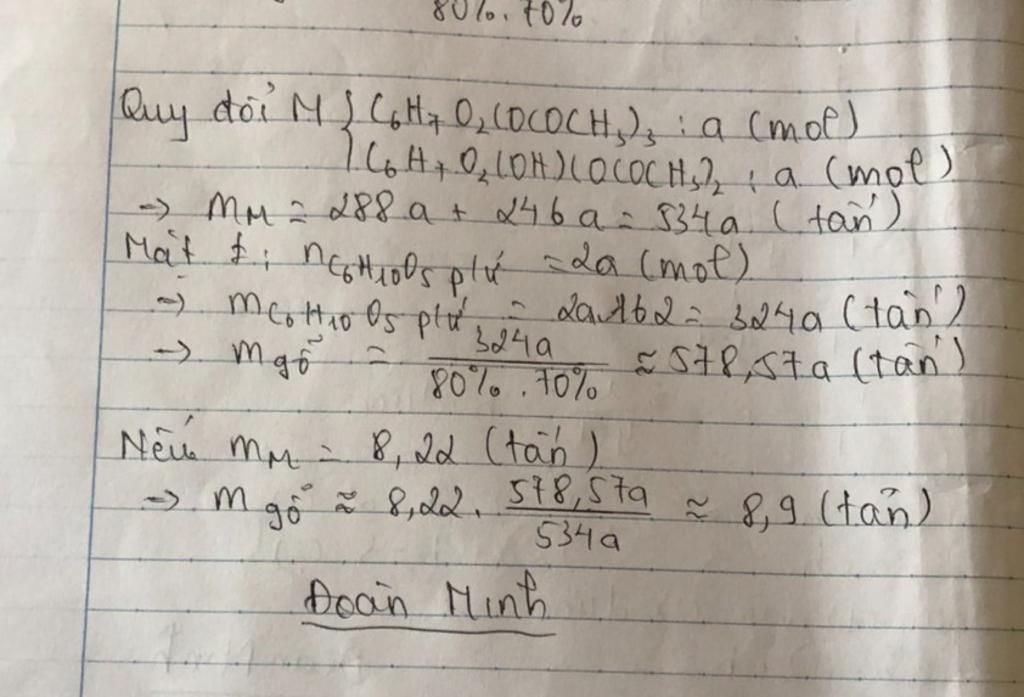 80%. 70%
Quy đổi M { C6H7O2(OCOCH3)3 : a (mol)
{ C6H7O2(OH)(OCOCH3)2 : a (mol)
→ mM = 288a + 246a = 534a (tấn)
Mặt ≠ : nC6H10O5 p/ứ = 2a (mol)
→ mC6H10O5 p/ứ = 2a.162 = 324a (tấn)
→ mgỗ = 324a / 80%.70% ≈ 578,57a (tấn)
Nếu mM = 8,22 (tấn)
→ mgỗ ≈ 8,22. 578,57a / 534a ≈ 8,9 (tấn)
Đoàn Minh